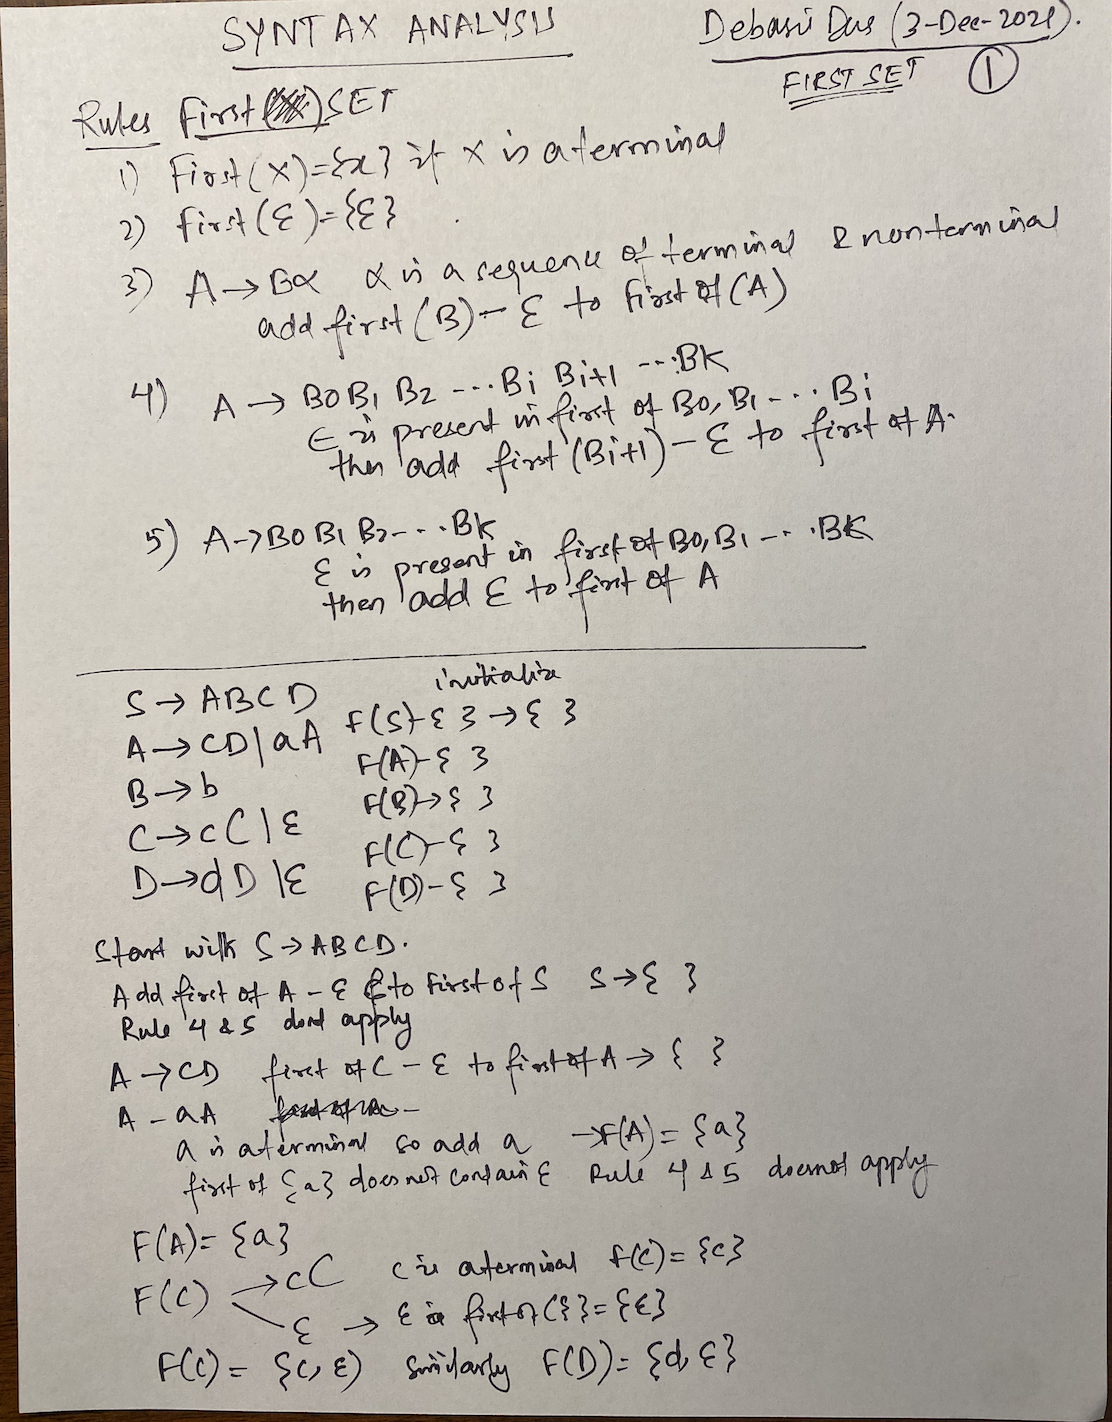 SYNTAX ANALYSIS
Debasis Das (3-Dec-2021).
FIRST SET ①
Rules First SET
1) First(X)={x} if X is a terminal
2) First(ε)={ε}
3) A→Bα α is a sequence of terminal & nonterminal
add first(B)-ε to First of (A)
4) A→ B0 B1 B2 ---Bi Bi+1 ---BK
ε is present in first of B0, B1 --- Bi
then add first(Bi+1)-ε to first of A.
5) A→B0 B1 B2--- BK
ε is present in first of B0, B1 --- BK
then add ε to first of A
initialize
S→ ABCD F(S)-{ }→{ }
A→CD|aA F(A)-{ }
B→b F(B)→{ }
C→cC|ε F(C)-{ }
D→dD|ε F(D)-{ }
Start with S→ABCD.
Add first of A-ε to First of S S→{ }
Rule 4 & 5 dont apply
A→CD first of C-ε to first of A→{ }
A-aA
a is a terminal so add a →F(A)= {a}
first of {a} does not contain ε Rule 4 & 5 doesnot apply
F(A)= {a}
F(C) →cC c is a terminal F(C)= {c}
ε → ε is first of ({}= {ε}
F(C)= {c, ε) Similarly F(D)= {d, ε}